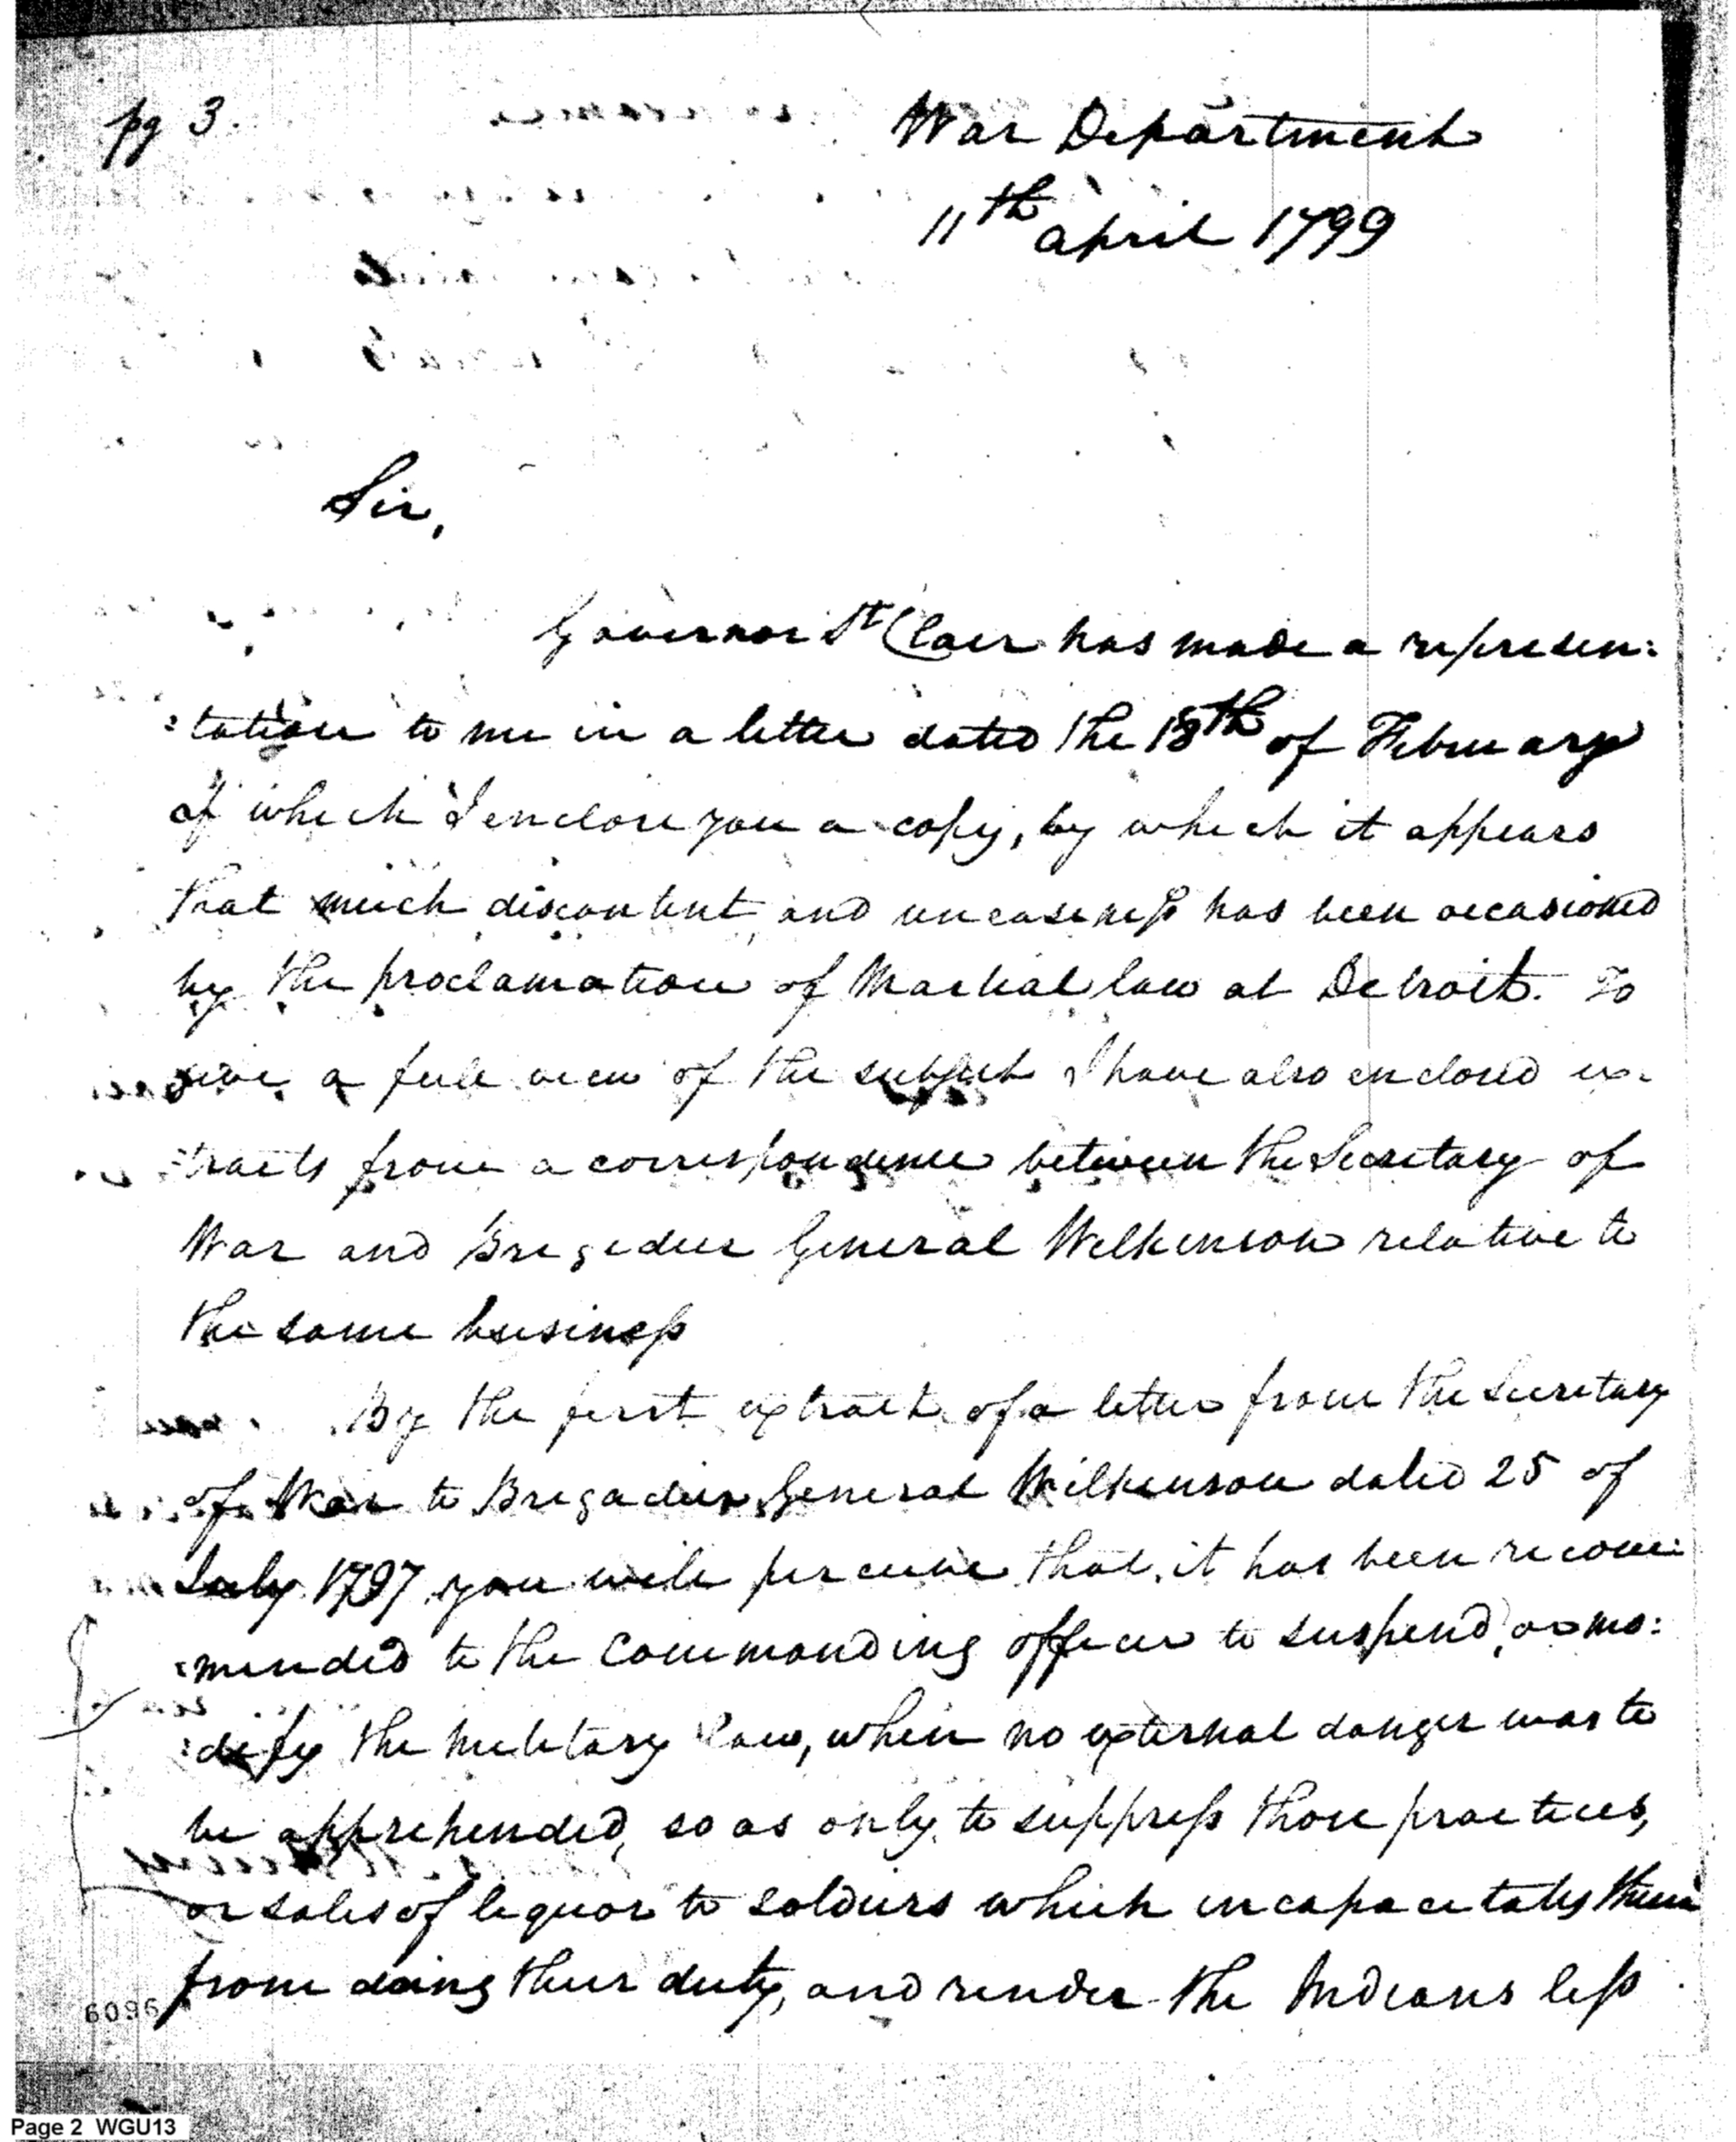 pg 3.
War Department
11th april 1799
Sir,
Governor St Clair has made a represen:
:tation to me in a letter dated the 18th of February
of which I enclose you a copy, by which it appears
that much discontent and uneasiness has been occasioned
by the proclamation of Martial law at Detroit. To
give a full view of the subject I have also enclosed ex-
:tracts from a correspondence between the Secretary of
War and Brigadier General Wilkinson relative to
the same business
By the first extract of a letter from the Secretary
of War to Brigadier General Wilkinson dated 25 of
July 1797 you will perceive that it has been recom:
:mended to the Commanding officer to suspend, or mo:
:dify the military law, when no external danger was to
be apprehended, so as only to suppress those practices,
or sales of liquor to soldiers which incapacitates them
from doing their duty, and render the Indians less
6096
Page 2 WGU13